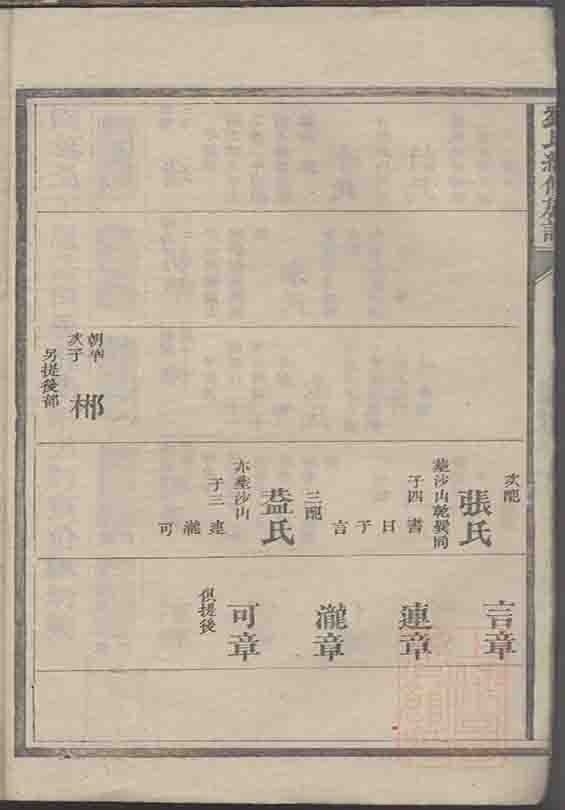 氏續修族譜
朝華
次子
郴
另提後部
次配
張氏
葬沙山乾巽同
子四 書
日
于
言
三配
葢氏
亦葬沙山
子三 連
瀧
可
言章
連章
瀧章
可章
俱提後